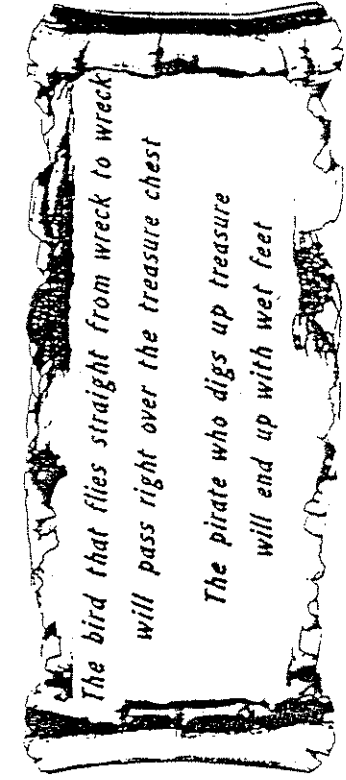 The bird that flies straight from wreck to wreck
will pass right over the treasure chest
The pirate who digs up treasure
will end up with wet feet